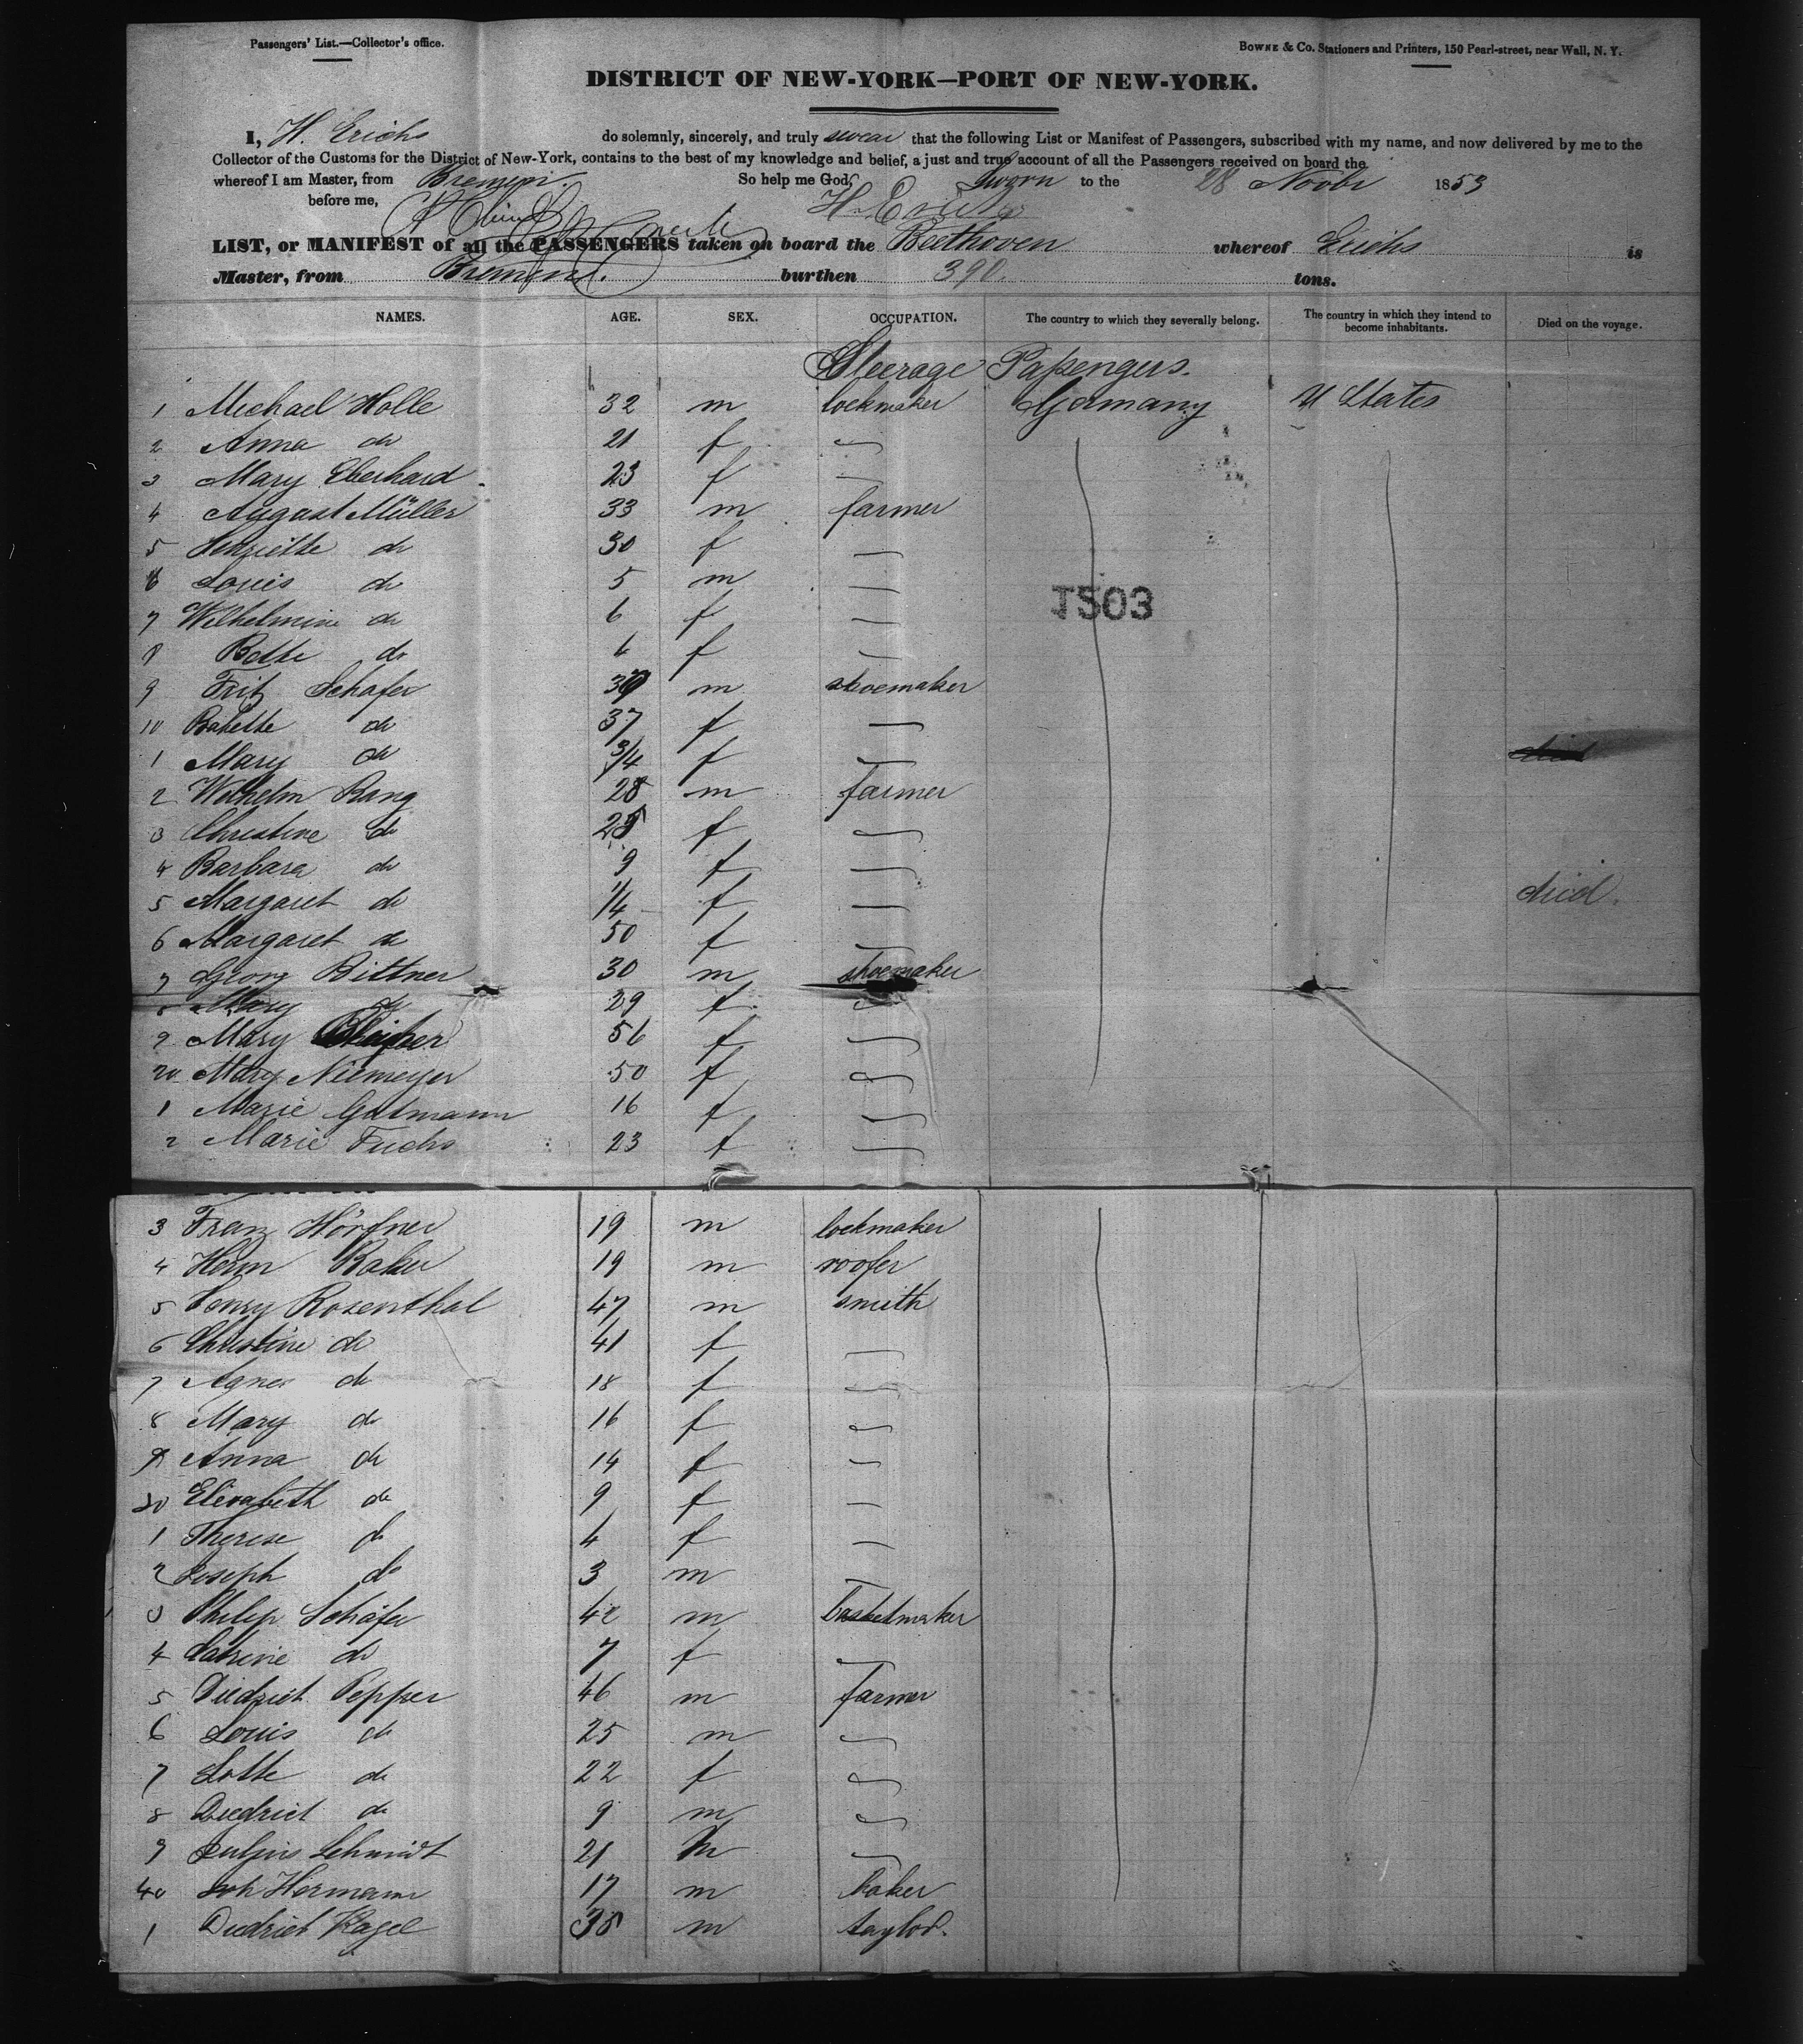 Passengers' List.—Collector's office.
BOWNE & Co. Stationers and Printers, 150 Pearl-street, near Wall, N. Y.
DISTRICT OF NEW-YORK—PORT OF NEW-YORK.
I, H. Erichs do solemnly, sincerely, and truly swear that the following List or Manifest of Passengers, subscribed with my name, and now delivered by me to the
Collector of the Customs for the District of New-York, contains to the best of my knowledge and belief, a just and true account of all the Passengers received on board the
whereof I am Master, from Bremen. So help me God, Sworn to the 28 Novbr 1853
before me, H. Erichs
LIST, or MANIFEST of all the PASSENGERS taken on board the Beethoven whereof Erichs is
Master, from Bremen. burthen 390. tons.
NAMES. AGE. SEX. OCCUPATION. The country to which they severally belong. The country in which they intend to become inhabitants. Died on the voyage.
Steerage Passengers.
1 Michael Holle 32 m lockmaker Germany U States
2 Anna do 21 f —
3 Mary Eberhard 23 f —
4 August Müller 33 m farmer
5 Henriette do 30 f —
6 Louis do 5 m —
7 Wilhelmine do 6 f —
8 Bette do 4 f —
9 Fritz Schafer m shoemaker
10 Babette do 37 f —
1 Mary do 3/4 f — died
2 Wilhelm Rang 28 m farmer
3 Christine do 25 f —
4 Barbara do 9 f —
5 Margaret do 1/4 f — died.
6 Margaret do 50 f —
7 Georg Bittner 30 m shoemaker
8 Mary do 29 f —
9 Mary 56 f —
20 Mary Niemeyer 50 f —
1 Marie Gutmann 16 f —
2 Marie Fuchs 23 f —
1503
3 Franz Hörfner 19 m lockmaker
4 Herm Baker 19 m roofer
5 Henry Rosenthal 47 m smith
6 Christine do 41 f —
7 Agnes do 18 f —
8 Mary do 16 f —
9 Anna do 14 f —
30 Elisabeth do 9 f —
1 Therese do 4 f —
2 Joseph do 3 m —
3 Philip Schäfer 42 m basketmaker
4 Catrine do 7 f —
5 Diedrich Pepper 46 m farmer
6 Louis do 25 m —
7 Lotte do 22 f —
8 Diedrich do 9 m —
9 Julius Schmidt 21 m —
40 Joh Hermann 17 m baker
1 Diedrich Kagel 38 m taylor.